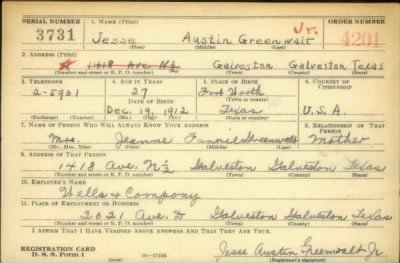 SERIAL NUMBER 1. NAME (Print) ORDER NUMBER
3731 Jesse Austin Greenwalt Jr. 4201
(First) (Middle) (Last)
2. ADDRESS (Print)
1418 Ave. N½ Galveston Galveston Texas
(Number and street or R. F. D. number) (Town) (County) (State)
3. TELEPHONE 4. AGE IN YEARS 5. PLACE OF BIRTH 6. COUNTRY OF CITIZENSHIP
2-5901 27 Fort Worth
DATE OF BIRTH (Town or county)
Dec. 19, 1912 Texas U.S.A.
(Mo.) (Day) (Yr.) (State or country)
7. NAME OF PERSON WHO WILL ALWAYS KNOW YOUR ADDRESS 8. RELATIONSHIP OF THAT PERSON
Mrs. Jeanne Greenwalt Mother
(Mr., Mrs., Miss) (First) (Middle) (Last)
9. ADDRESS OF THAT PERSON
1418 Ave. N½ Galveston Galveston Texas
(Number and street or R. F. D. number) (Town) (County) (State)
10. EMPLOYER'S NAME
Wells & Company
11. PLACE OF EMPLOYMENT OR BUSINESS
2021 Ave. D Galveston Galveston Texas
(Number and street or R. F. D. number) (Town) (County) (State)
I AFFIRM THAT I HAVE VERIFIED ABOVE ANSWERS AND THAT THEY ARE TRUE.
REGISTRATION CARD
D. S. S. Form 1 Jesse Austin Greenwalt Jr.
(Registrant's signature)